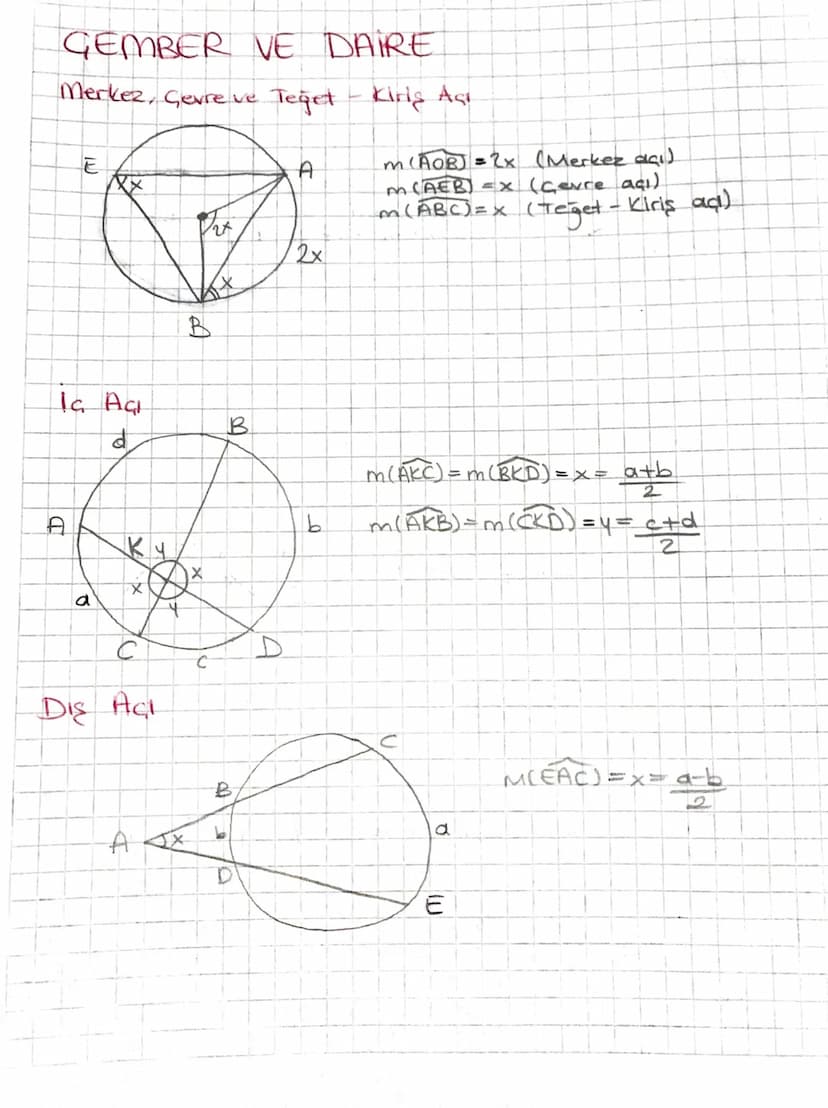 ÇEMBER VE DAİRE
Merkez, Çevre ve Teğet - Kiriş Açı
E
A
x
2x
x
2x
B
m(AOB) = 2x (Merkez açı)
m(AEB) = x (Çevre açı)
m(ABC) = x (Teğet - Kiriş açı)
İç Açı
d
B
A
b
K
y
x
x
y
a
C
c
D
m(AKC) = m(BKD) = x = a+b/2
m(AKB) = m(CKD) = y = c+d/2
Dış Açı
C
B
A
x
b
a
D
E
M(EAC) = x = a-b/2